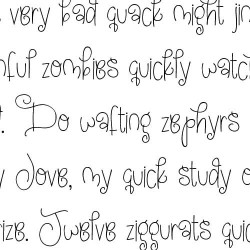 very bad quack might jin
nful zombies quickly watc
. Do wafting zephyrs
y Jove, my quick study o
rize. Twelve ziggurats quic